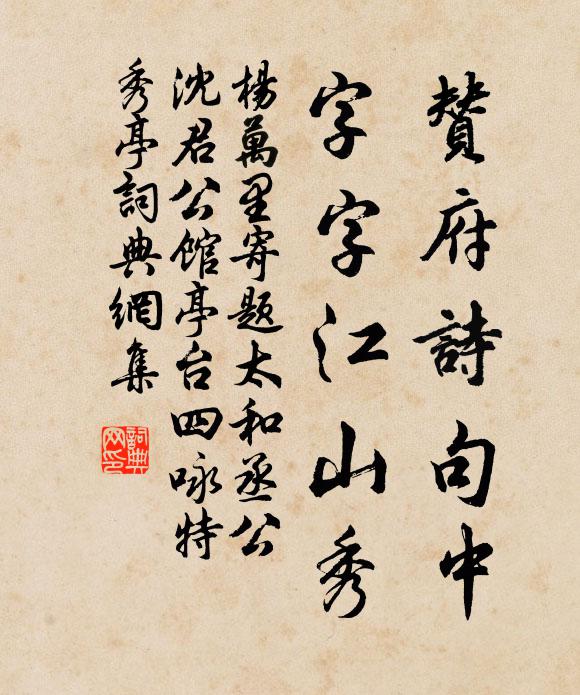 贊府詩句中
字字江山秀
楊萬里寄題太和丞公
沈君公館亭台四咏特
秀亭詞典網集
詞典
网印